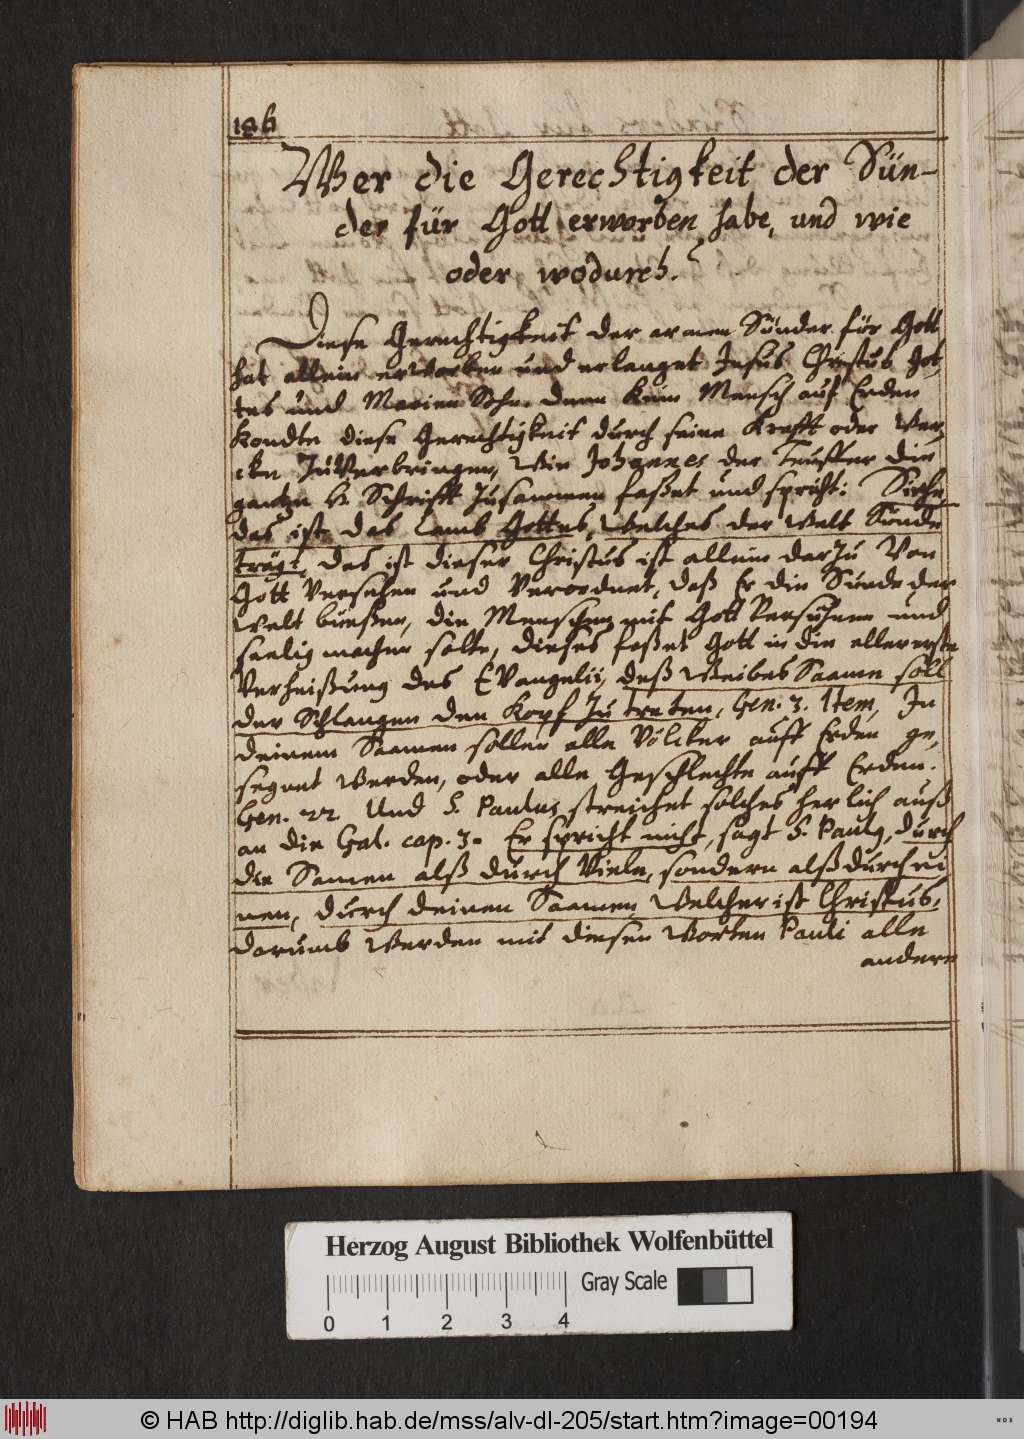 186
Wer die Gerechtigkeit der Sün-
der für Gott erworben habe, und wie
oder wodurch?
Diese Gerechtigkeit der armen Sünder für Gott
hat allein erworben und erlanget Jesus Christus Got-
tes und Marien Sohn. Denn kein Mensch auf Erden
kondte diese Gerechtigkeit durch seine Krafft oder Wer-
cke zuverbringen, Wie Johannes der Teuffer die
gantze H. Schrifft zusammen faßet und spricht: Siehe
das ist das Lamb Gottes, welches der Welt Sünde
trägt, das ist dieser Christus ist allein darzu Von
Gott Versehen und Verordnet, daß Er die Sünde der
Welt büeßen, die Menschen mit Gott Versühnen und
seelig machen solte, dieses faßet Gott in die allererste
Verheißung des EVangelii, deß Weibes Saame soll
der Schlangen den Kopf zu treten, Gen. 3. Item, In
deinem Saamen sollen alle Völcker auff Erden ge-
segnet werden, oder alle Geschlechte auff Erden.
Gen. 22 Und S. Paulus streichet solches herlich auß
an die Gal. cap. 3. Er spricht nicht, sagt S. Paulg, durch
die Samen alß durch Viele, sondern alß durch ei-
nen, durch deinen Saamen, Welcher ist Christus,
darumb werden mit diesen Worten Pauli alle
andere
Herzog August Bibliothek Wolfenbüttel
Gray Scale
0 1 2 3 4
© HAB http://diglib.hab.de/mss/alv-dl-205/start.htm?image=00194